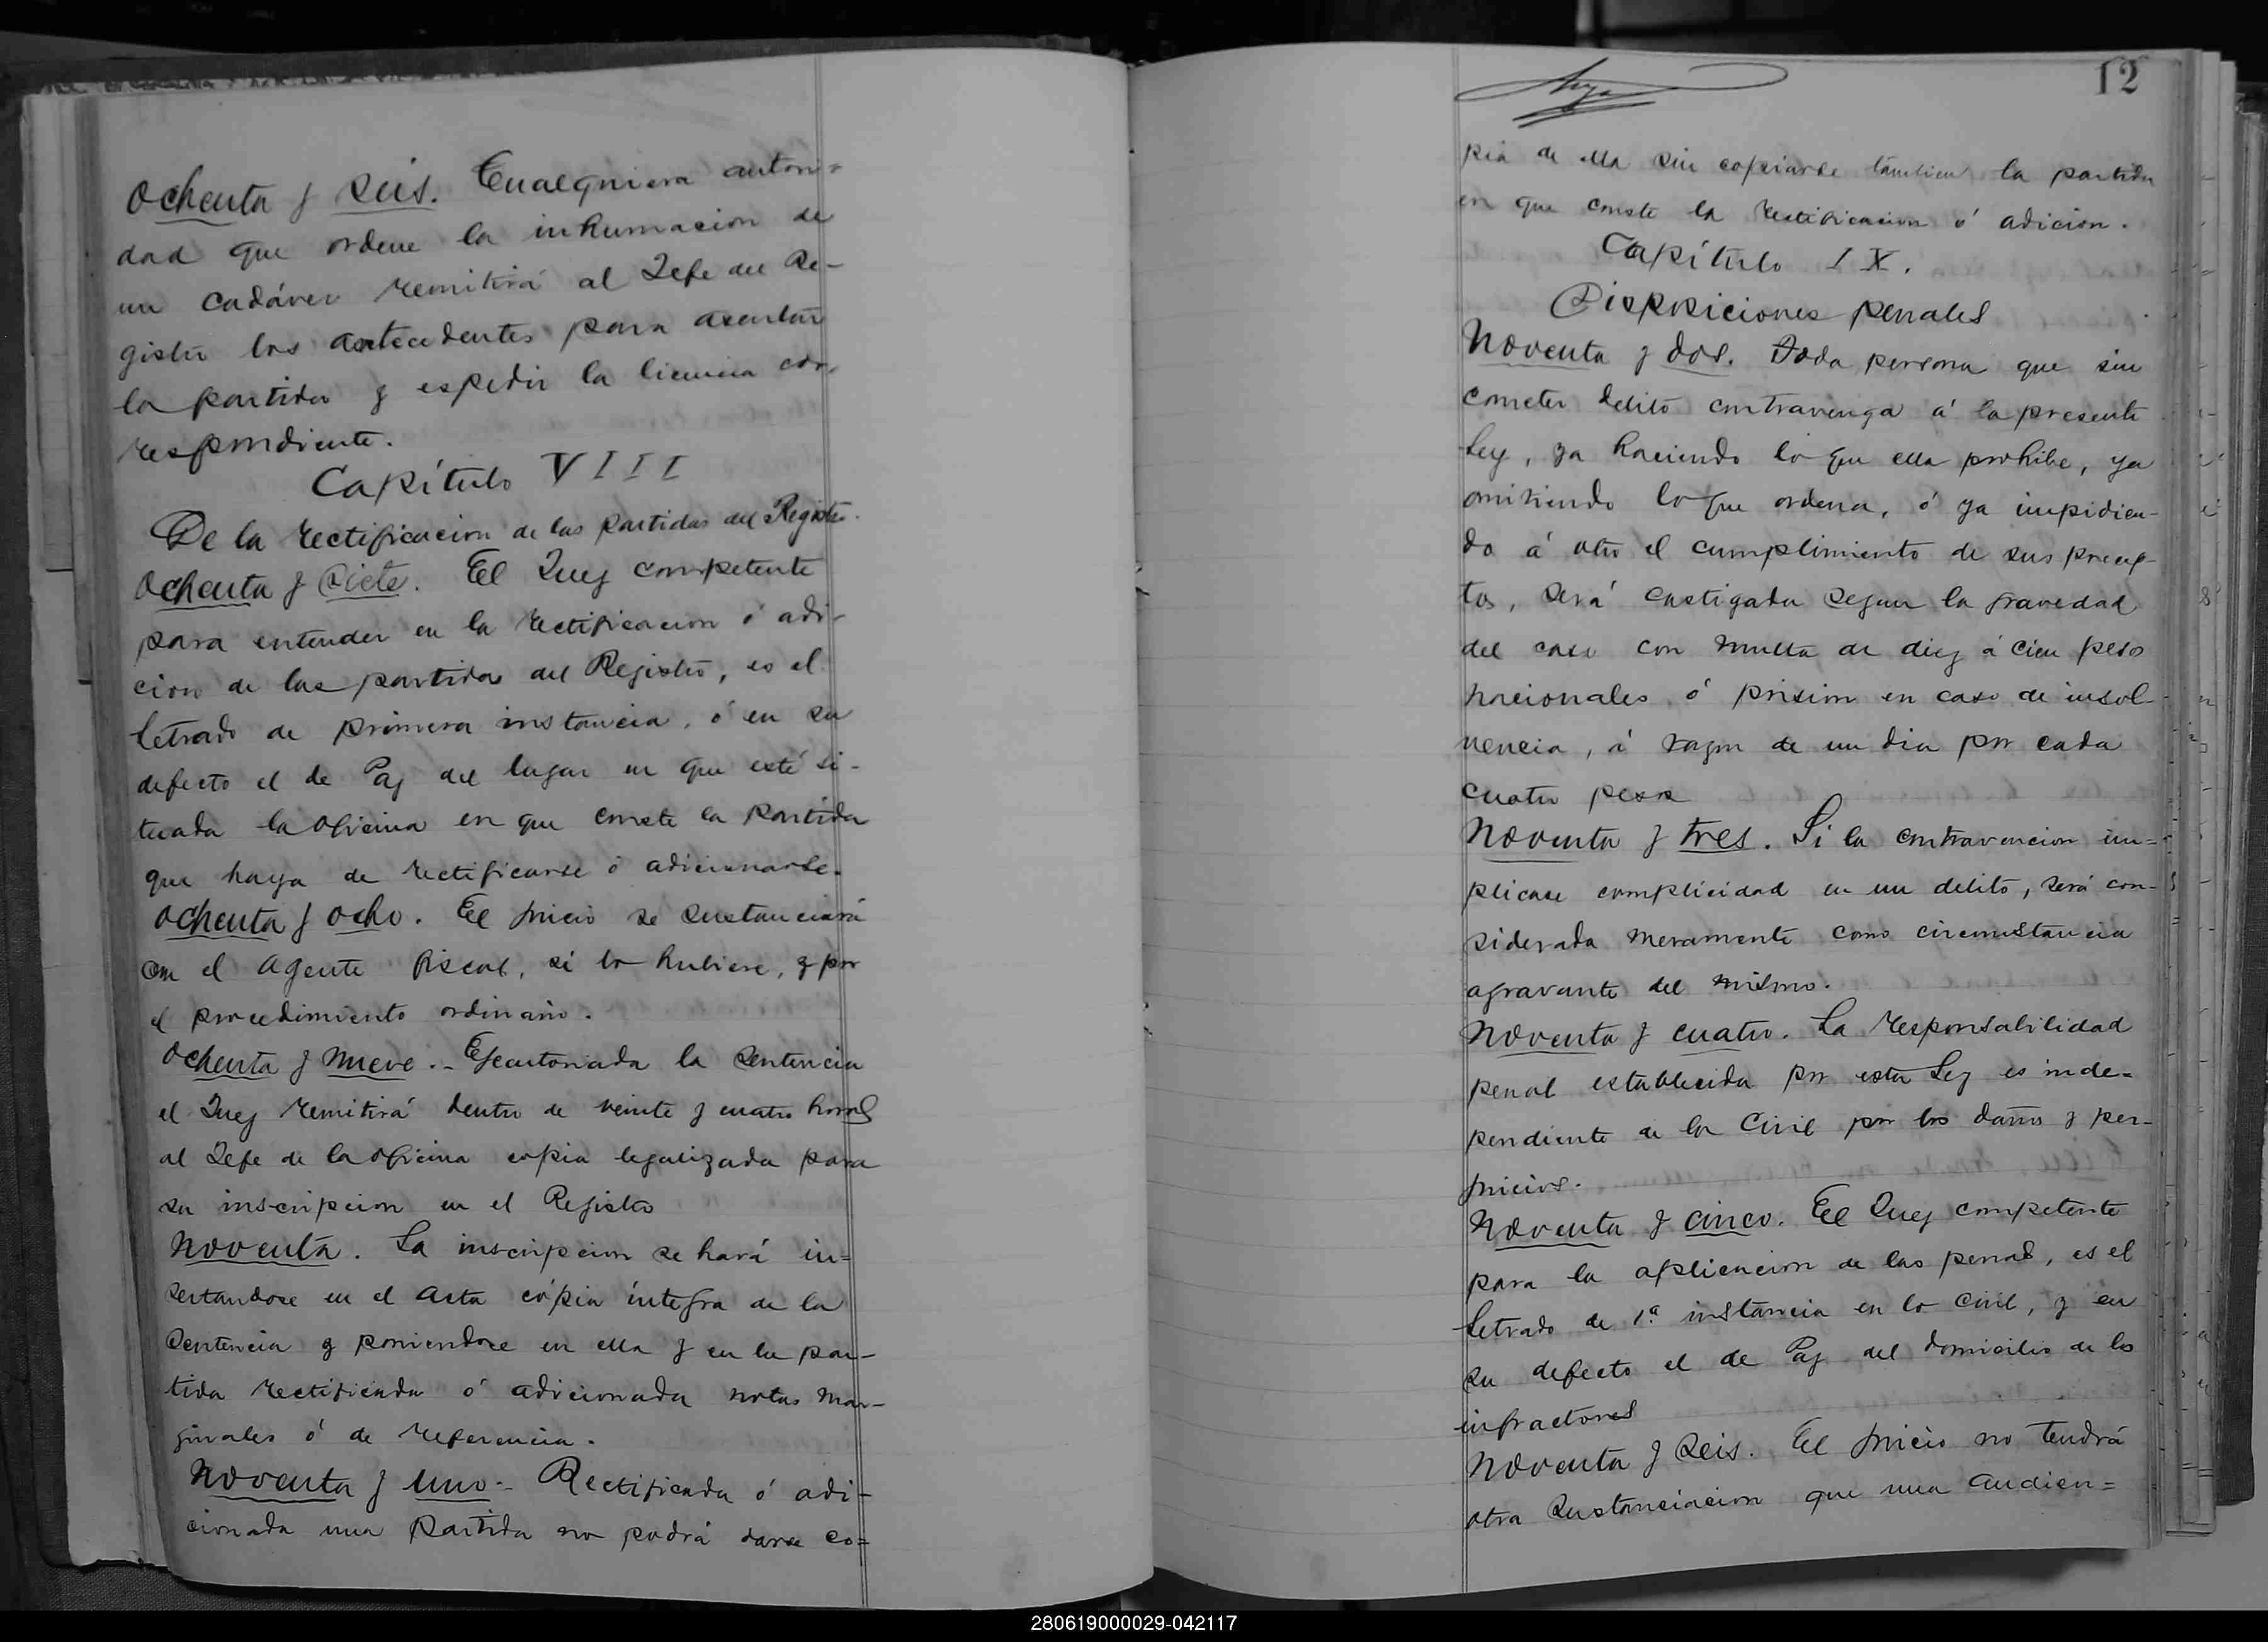 Ochenta y seis. Cualquiera autori=
dad que ordene la inhumacion de
un cadáver remitirá al Jefe del Re-
gistro los antecedentes para asentar
la partida y espedir la licencia cor-
respondiente.
Capítulo VIII
De la rectificacion de las partidas del Registro.
Ochenta y siete. El Juez competente
para entender en la rectificacion ó adi-
cion de las partidas del Registro, es el
letrado de primera instancia, ó en su
defecto el de Paz del lugar en que esté si-
tuada la oficina en que conste la partida
que haya de rectificarse ó adicionarse.
Ochenta y ocho. El juicio se sustanciará
con el Agente fiscal, si lo hubiere, y por
el procedimiento ordinario.
Ochenta y nueve.- Ejecutoriada la sentencia
el Juez remitirá dentro de veinte y cuatro horas
al Jefe de la oficina copia legalizada para
su inscripcion en el Registro
Noventa. La inscripcion se hará in=
sertandose en el acta cópia íntegra de la
sentencia y poniendose en ella y en la par-
tida rectificada ó adicionada notas mar-
ginales ó de referencia.
Noventa y uno- Rectificada ó adi-
cionada una partida no podrá darse co=
12
pia de ella sin copiarse tambien la partida
en que conste la rectificacion ó adicion.
Capítulo IX.
Disposiciones penales
Noventa y dos. Toda persona que sin
cometer delito contravenga á la presente
Ley, ya haciendo lo que ella prohibe, ya
omitiendo lo que ordena, ó ya impidien-
do á otro el cumplimiento de sus precep-
tos, será castigada segun la gravedad
del caso con multa de diez á cien pesos
nacionales ó prision en caso de insol-
vencia, á razon de un dia por cada
cuatro pesos
Noventa y tres. Si la contravencion im=
plicase complicidad en un delito, será con-
siderada meramente como circunstancia
agravante del mismo.
Noventa y cuatro. La responsabilidad
penal establecida por esta Ley es inde=
pendiente de la Civil por los daños y per-
juicios.
Noventa y cinco. El Juez competente
para la aplicacion de las penas, es el
Letrado de 1ª instancia en lo civil, y en
su defecto el de Paz del domicilio de los
infractores
Noventa y seis. El juicio no tendrá
otra sustanciacion que una audien=
280619000029-042117